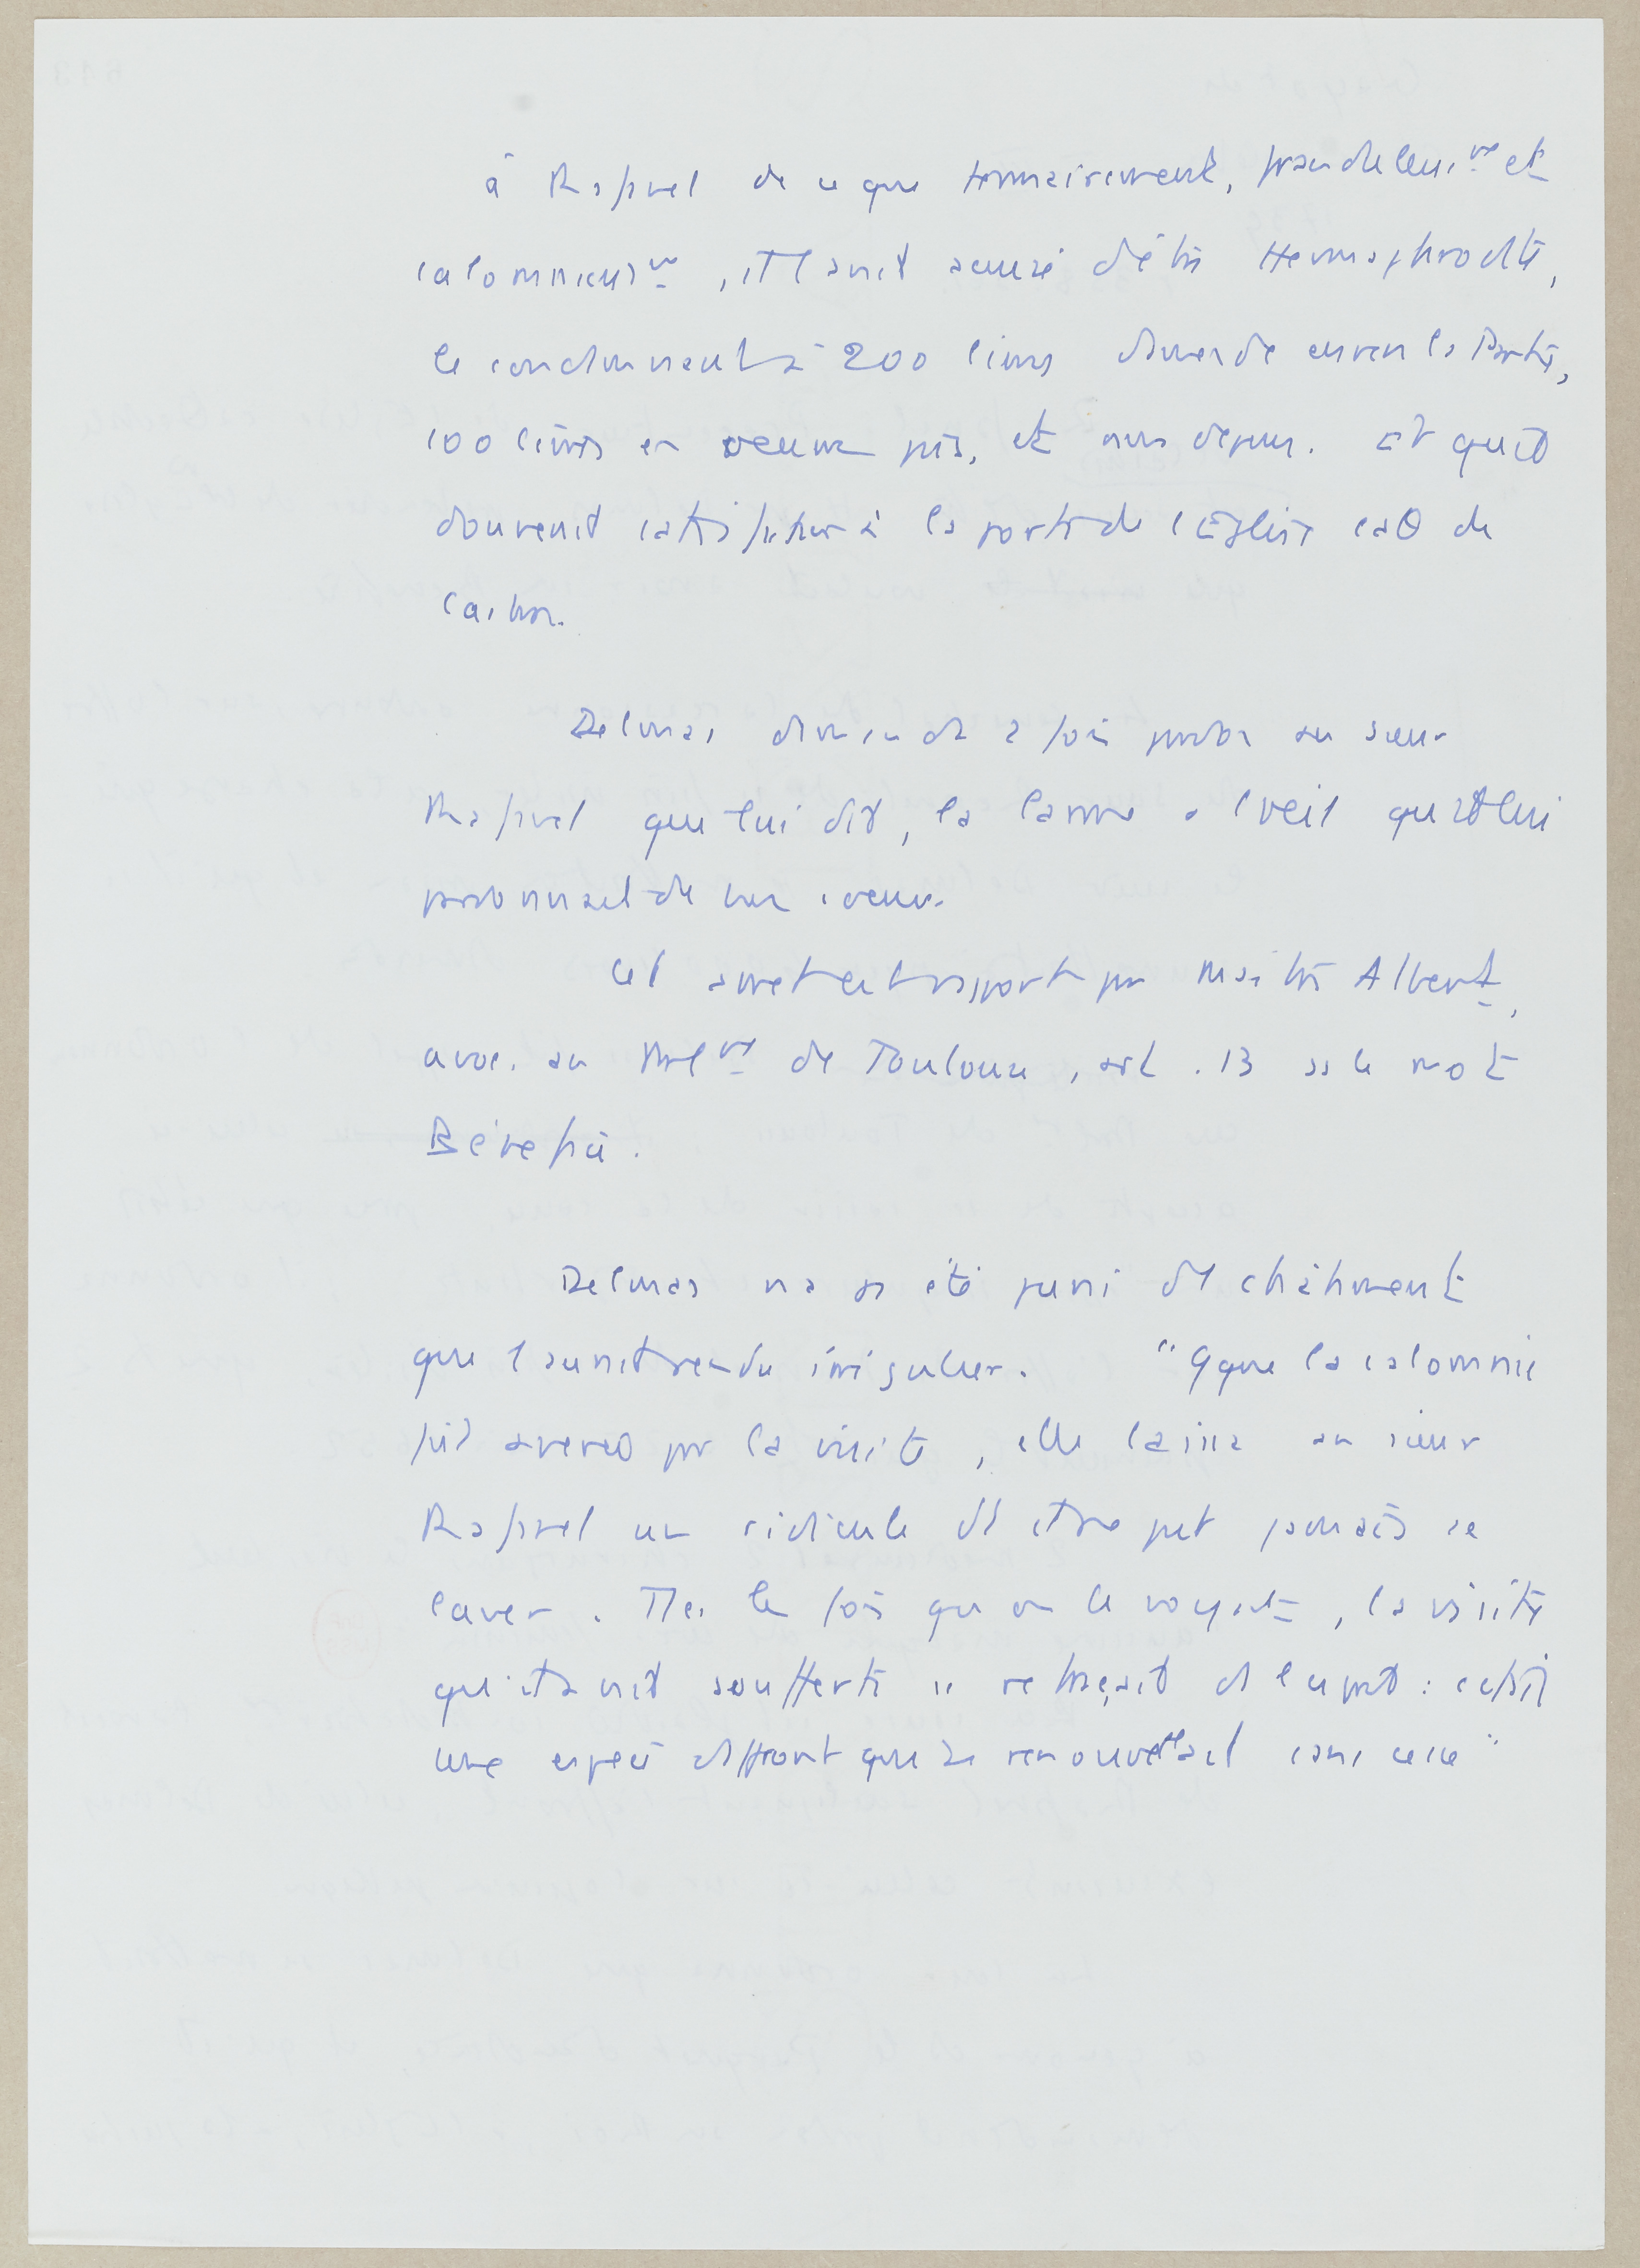 à Raspuel de ce que temerairement, scandaleus.nt et
calomnieus.nt, il l'avait accusé d'être Hermaphrodite,
le condamnent à 200 livres d'amende envers la Partie,
100 livres en œuvres pies, et aux depens. Et qu'il
d'ouvrir satisfaction à la porte de l'Eglise cath de
Cahors.
Delmas demanda 2 fois pardon au sieur
Raspuel qui lui dit, la larme à l'œil qu'il lui
pardonnait de bon cœur.
Cet arret est rapporté par Maitre Albert,
avoc. au Prlmt de Toulouse, art. 13 ss le mot
Bénéfice.
Delmas n'a pas été puni du châtiment
que l'aurait rendu irrégulier. "Qque la calomnie
fut averée par la visite, elle laissa au sieur
Raspuel un ridicule dt il ne put jamais se
laver. Ttes les fois qu'on le voyait, la visite
qu'il avait soufferte se retraçait ds l'esprit : c'était
une espèce d'affront qui se renouvellait sans cesse"